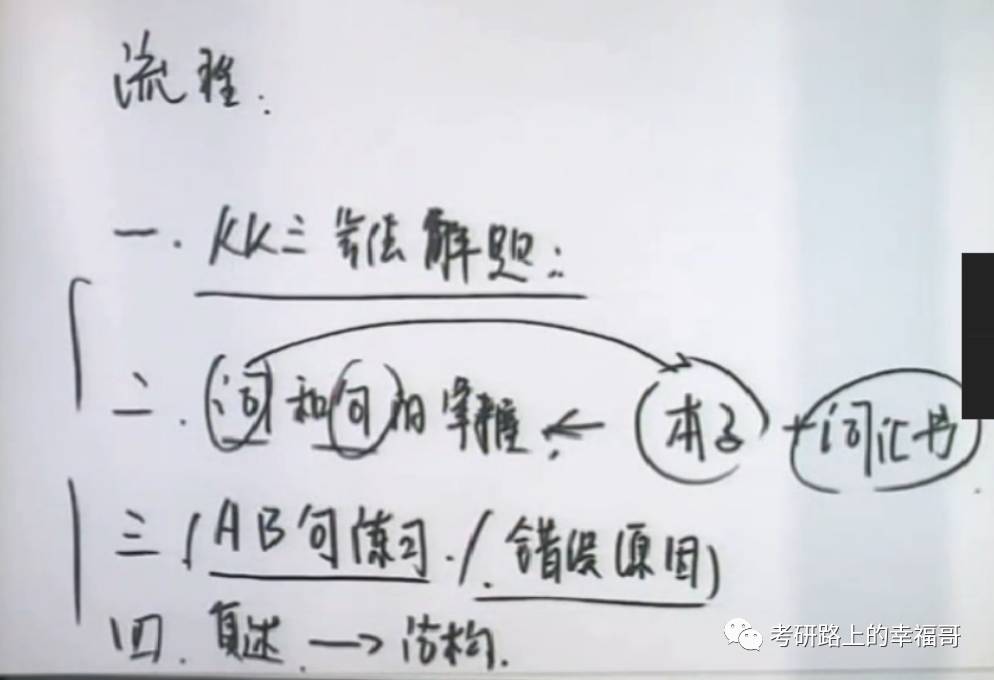 流程.
一. KK三算法解题:
二. 词和句的掌握. ← 本子 + 词汇书.
三(AB句练习./. 错误原因)
四. 复述. → 结构.
考研路上的幸福哥